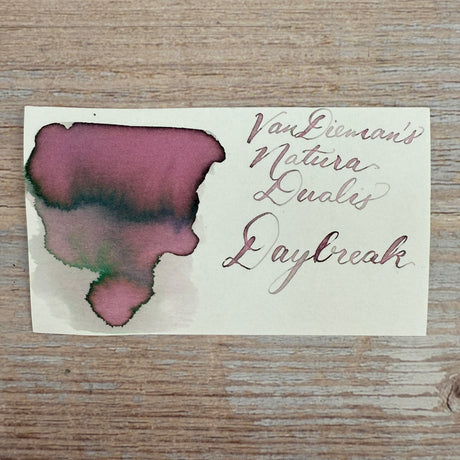 VanDieman's
Natura
Dualis
Daybreak